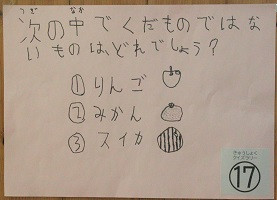 つぎ なか
次の中でくだものではな
いものは、どれでしょう?
①りんご
②みかん
③スイカ
きゅうしょく
クイズラリー
⑰